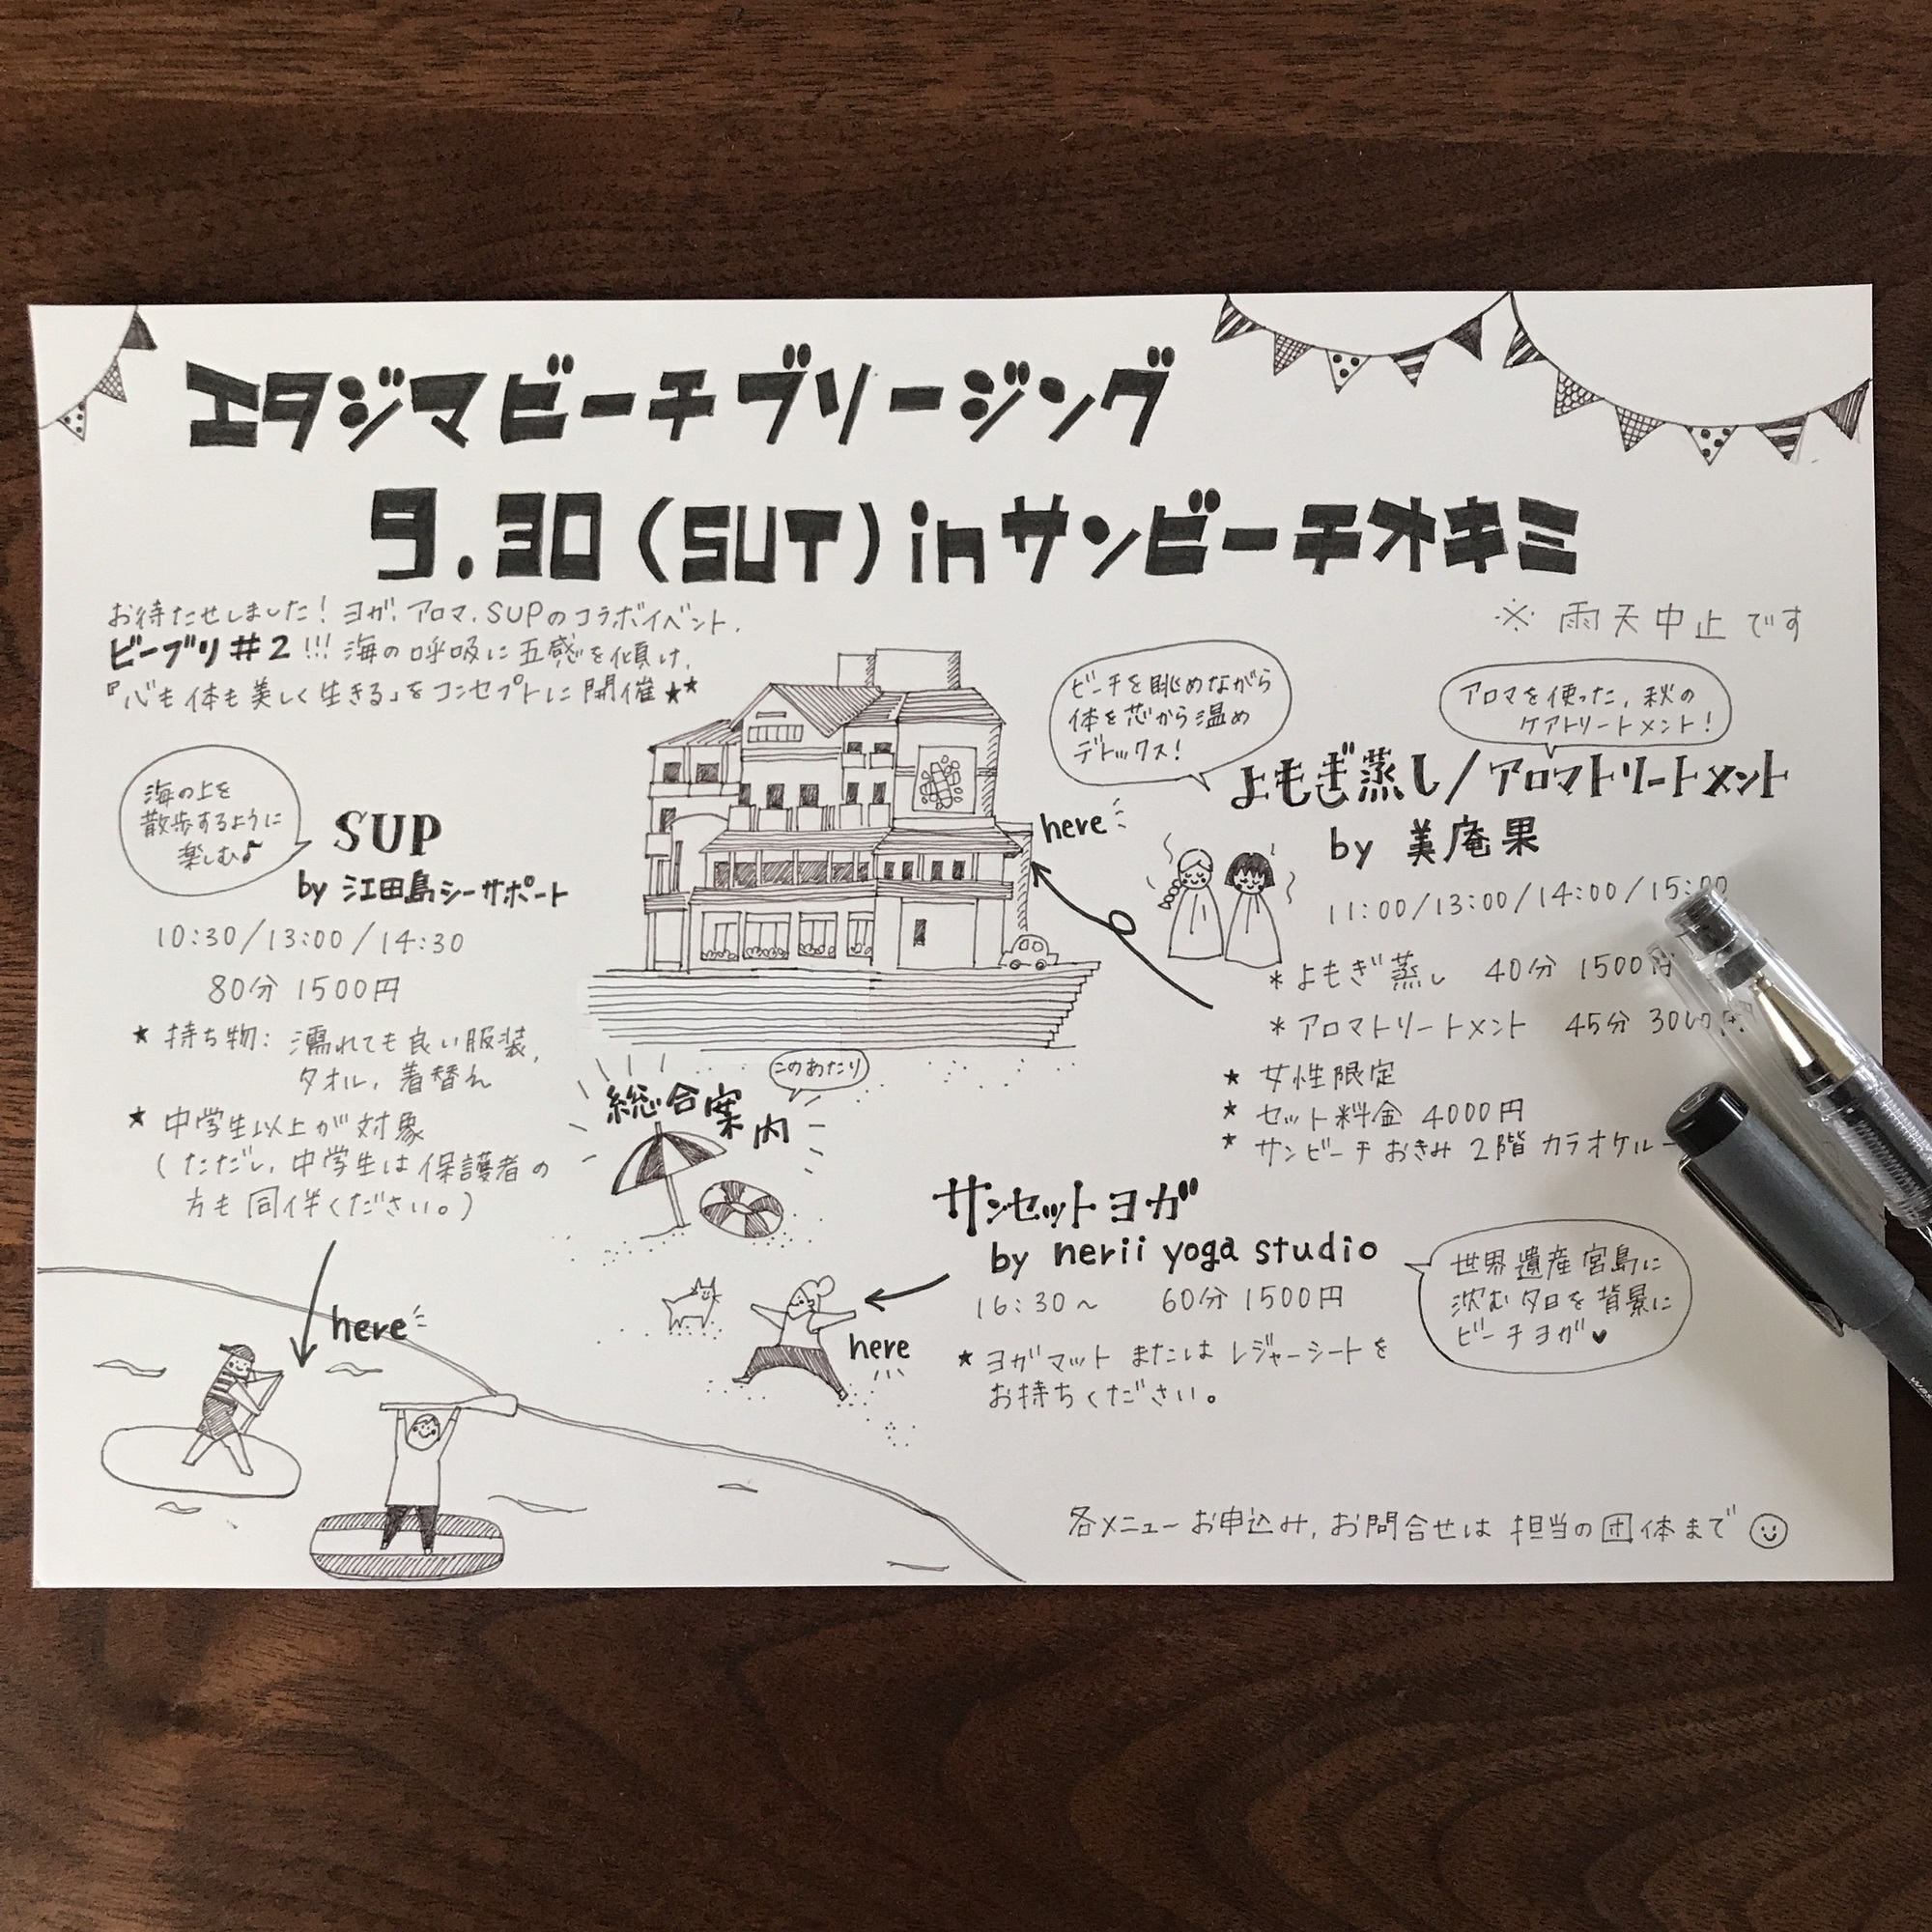 エタジマビーチブリージング
9.30(SUT)inサンビーチオキミ
お待たせしました!ヨガ、アロマ、SUPのコラボイベント、
ビーブリ#2!!!海の呼吸に五感を傾け、
『心も体も美しく生きる」をコンセプトに開催★★
※雨天中止です
海の上を
散歩するように
楽しむ♪
SUP
by 江田島シーサポート
10:30/13:00/14:30
80分 1500円
★ 持ち物: 濡れても良い服装、
タオル、着替え
★ 中学生以上が対象
(ただし、中学生は保護者の
方も同伴ください。)
here
ビーチを眺めながら
体を芯から温め
デトックス!
アロマを使った、秋の
ケアトリートメント!
よもぎ蒸し/アロマトリートメント
by 美庵果
here
11:00/13:00/14:00/15:00
*よもぎ蒸し 40分 1500円
*アロマトリートメント 45分 3000円
★ 女性限定
★ セット料金 4000円
★ サンビーチおきみ 2階 カラオケルー
このあたり
総合案内
サンセットヨガ
by nerii yoga studio
16:30〜 60分 1500円
here
★ ヨガマット または レジャーシートを
お持ちください。
世界遺産宮島に
沈む夕日を背景に
ビーチヨガ♥
各メニューお申込み、お問合せは担当の団体まで